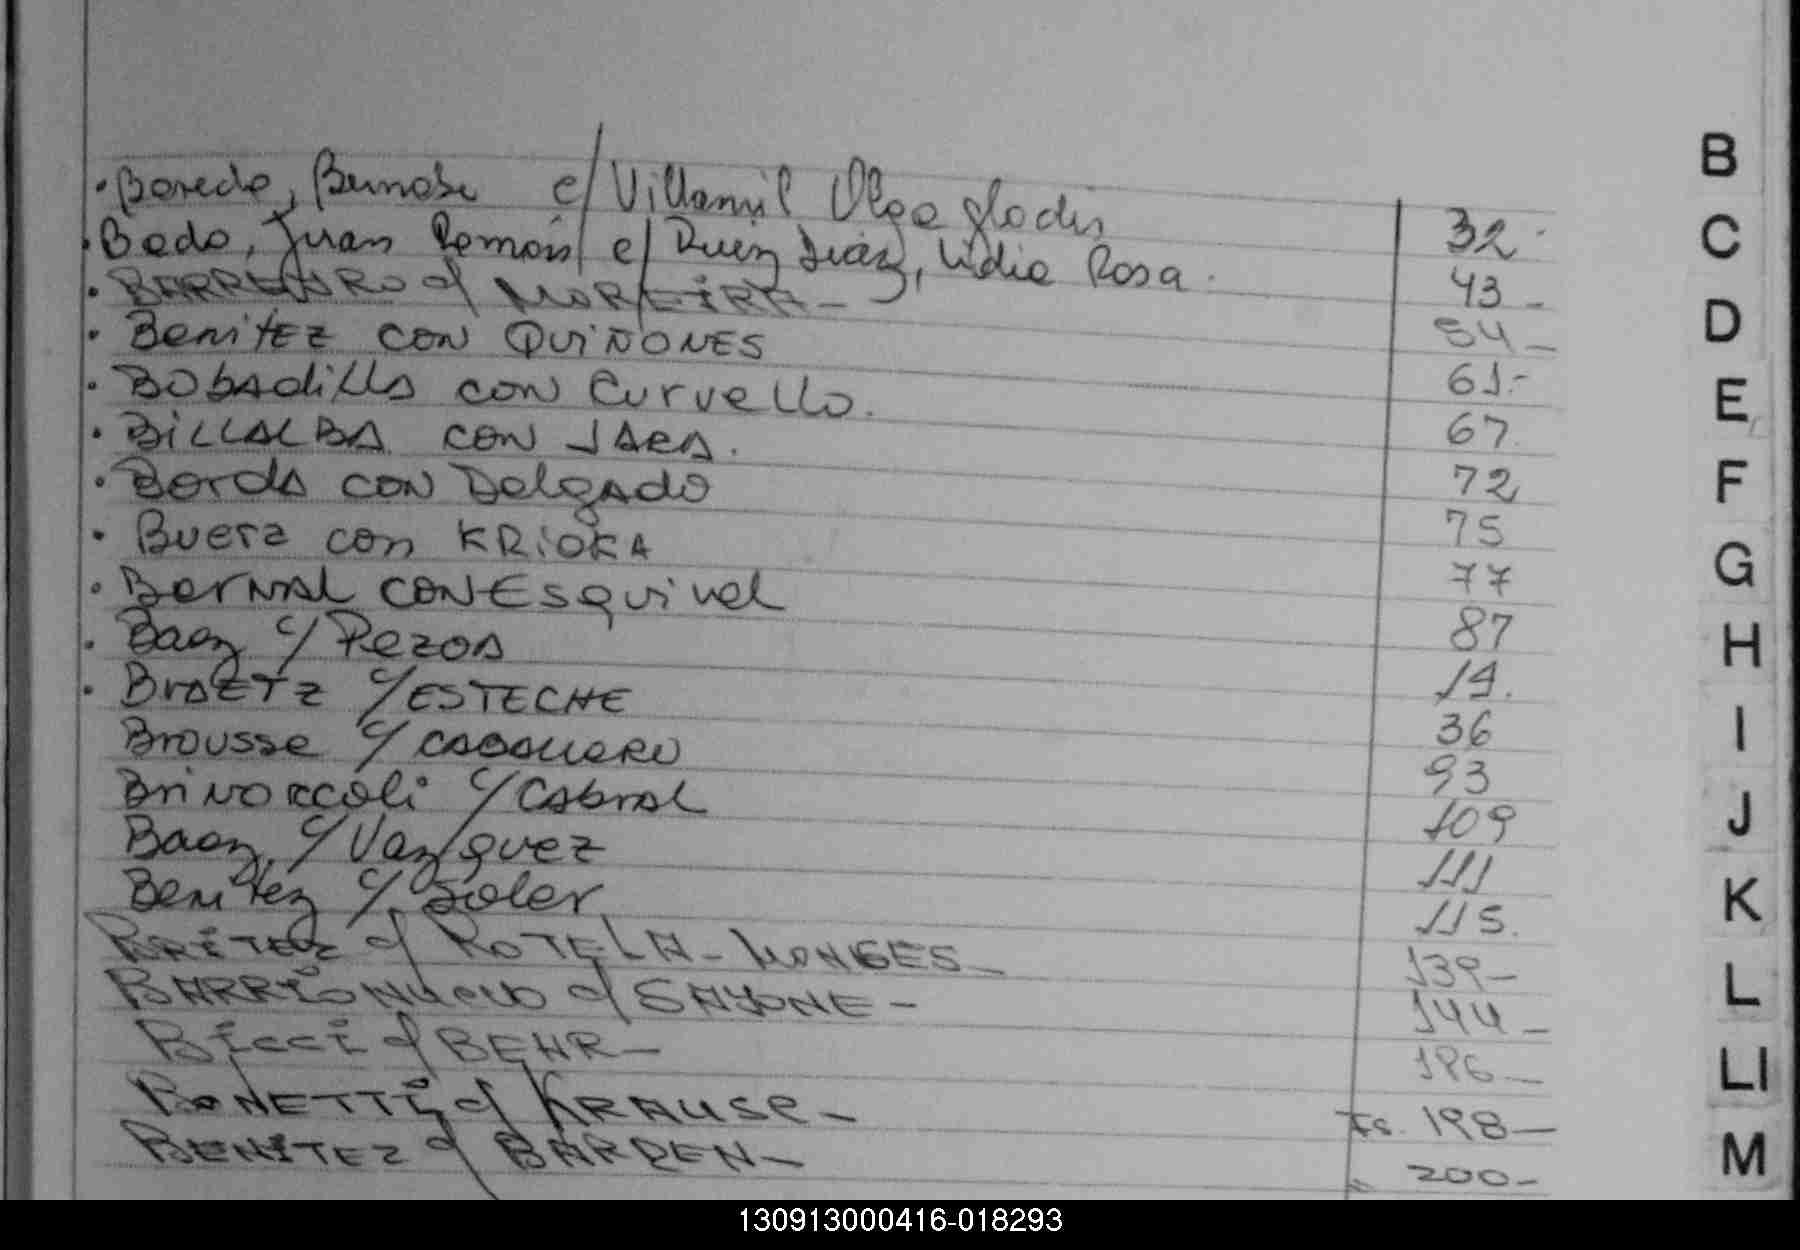 B
· Boredo, Bernabe c/ Villamil Olga gladis 32
C
· Bado, Juan Ramón c/ Ruiz Diaz, Lidia Rosa. 43 -
· BARREIRO c/ MOREIRA - 54 -
D
· Benitez con QUIÑONES 61.-
· Bobadilla con Curvello. 67
E
· BILLALBA con JARA. 72
F
· Borda con Delgado 75
· Buera con KRIOKA 77
G
· Bernal con Esquivel 87
· Baez c/ Pezoa 14.
H
· Braetz c/ ESTECHE 36
I
Brousse c/ CABALLERO 93
Brivoccoli c/ Cabral 109
J
Baez, c/ Vazquez 111
Benitez c/ Soler 115.
K
BRITEZ c/ ROTELA - MONGES - 139 -
BARRIONUEVO c/ SAYONE - 144 -
L
Bicci c/ BEHR - 196 -
LI
BONETTI c/ KRAUSE - Fs. 198 -
BENITEZ c/ BARDEN - " 200 -
M
130913000416-018293